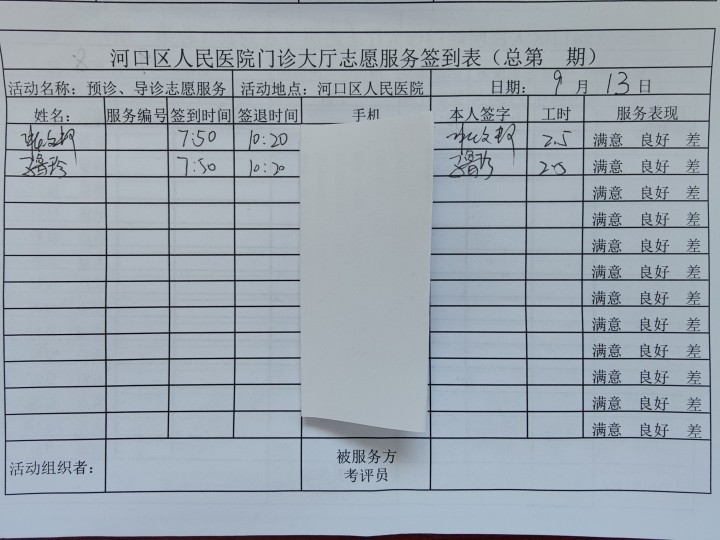 河口区人民医院门诊大厅志愿服务签到表（总第 期）
活动名称：预诊、导诊志愿服务 活动地点：河口区人民医院 日期： 9 月 13 日
姓名： 服务编号 签到时间 签退时间 手机 本人签字 工时 服务表现
7:50 10:20 2.5 满意 良好 差
7:50 10:20 2.5 满意 良好 差
满意 良好 差
满意 良好 差
满意 良好 差
满意 良好 差
满意 良好 差
满意 良好 差
满意 良好 差
满意 良好 差
满意 良好 差
满意 良好 差
活动组织者： 被服务方
考评员